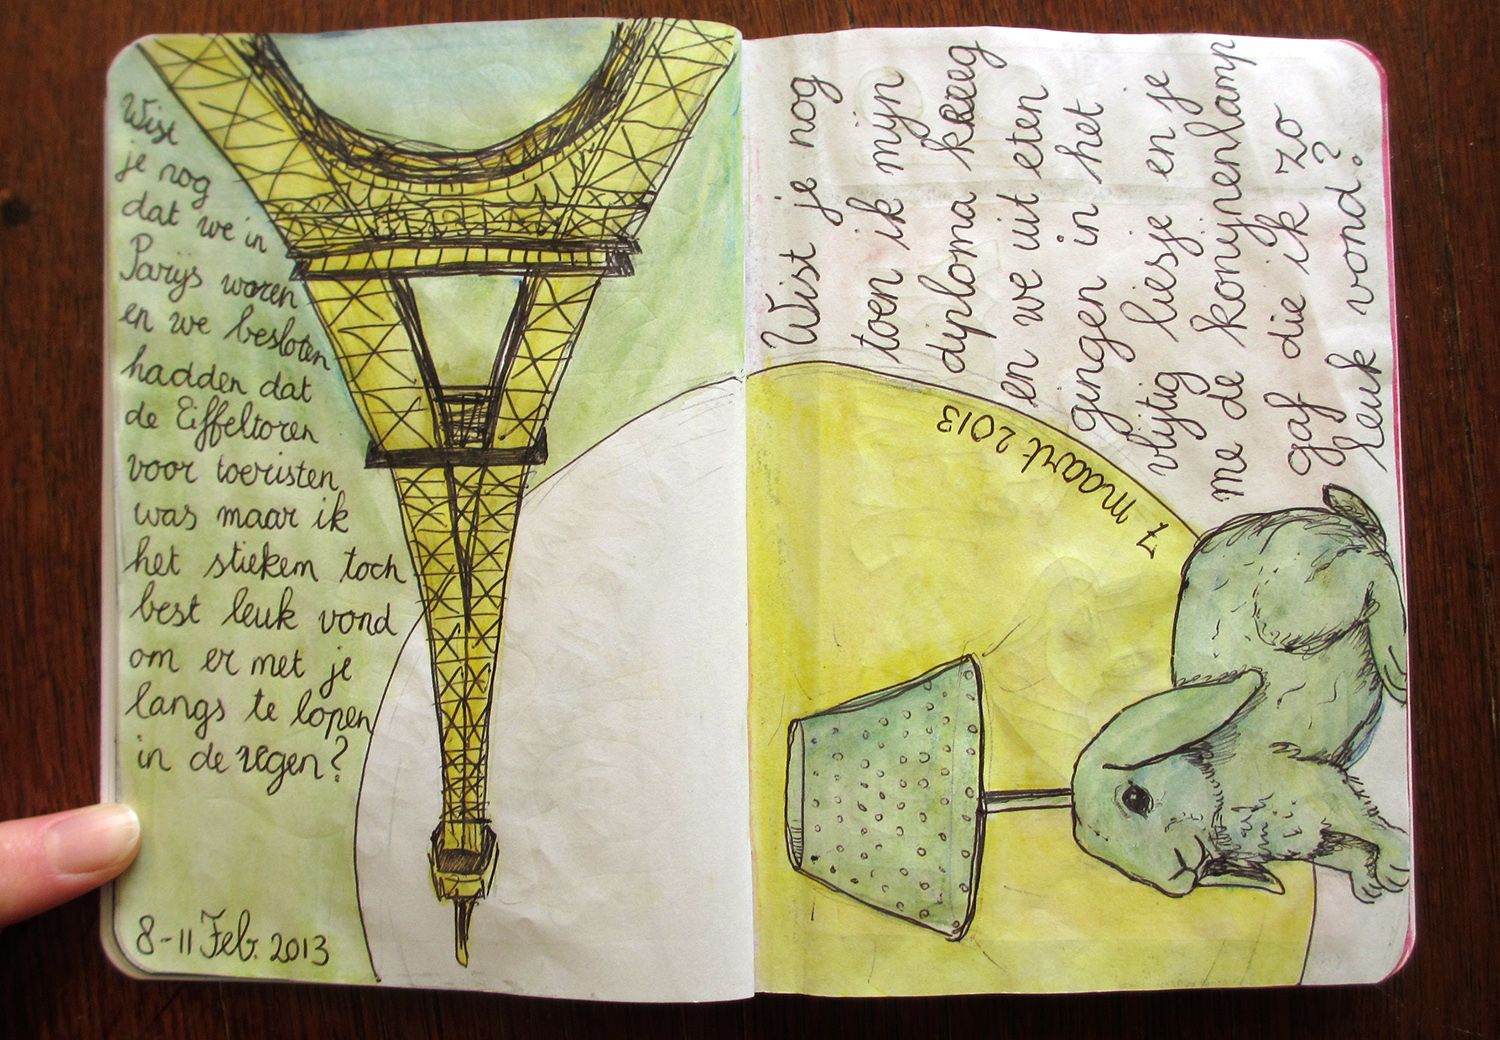 Wist
je nog
dat we in
Parijs waren
en we besloten
hadden dat
de Eiffeltoren
voor toeristen
was maar ik
het stiekem toch
best leuk vond
om er met je
langs te lopen
in de regen?
8-11 Feb. 2013
Wist je nog
toen ik mijn
diploma kreeg
en we uit eten
gingen in het
vlijtig liesje en je
me de konijnenlamp
gaf die ik zo
leuk vond?
7 maart 2013